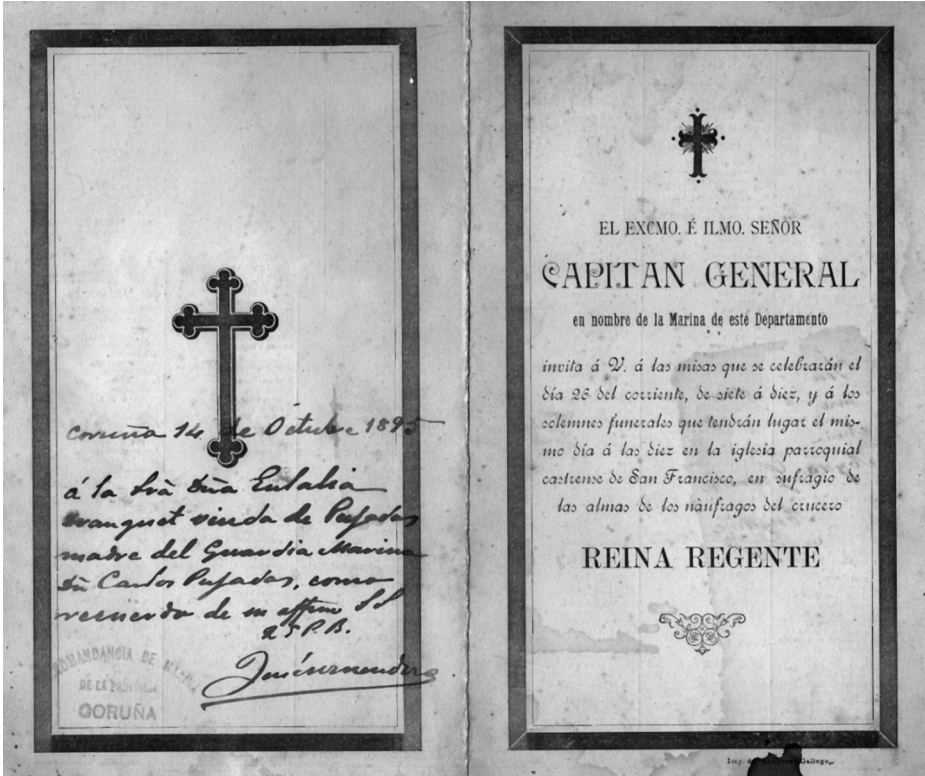 Coruña 14 de Octubre 1895
á la Srâ Dña Eulalia
viuda de Pujadas
madre del Guardia Marina
Dn Carlos Pujadas, como
recuerdo de su affmo S S
Q S P. B.
COMANDANCIA DE MARINA
DE LA PROVINCIA
CORUÑA
EL EXCMO. É ILMO. SEÑOR
CAPITAN GENERAL
en nombre de la Marina de este Departamento
invita á V. á las misas que se celebrarán el
día 26 del corriente, de siete á diez, y á los
solemnes funerales que tendrán lugar el mis-
mo día á las diez en la iglesia parroquial
castrense de San Francisco, en sufragio de
las almas de los náufragos del crucero
REINA REGENTE
Imp. de Gallego.